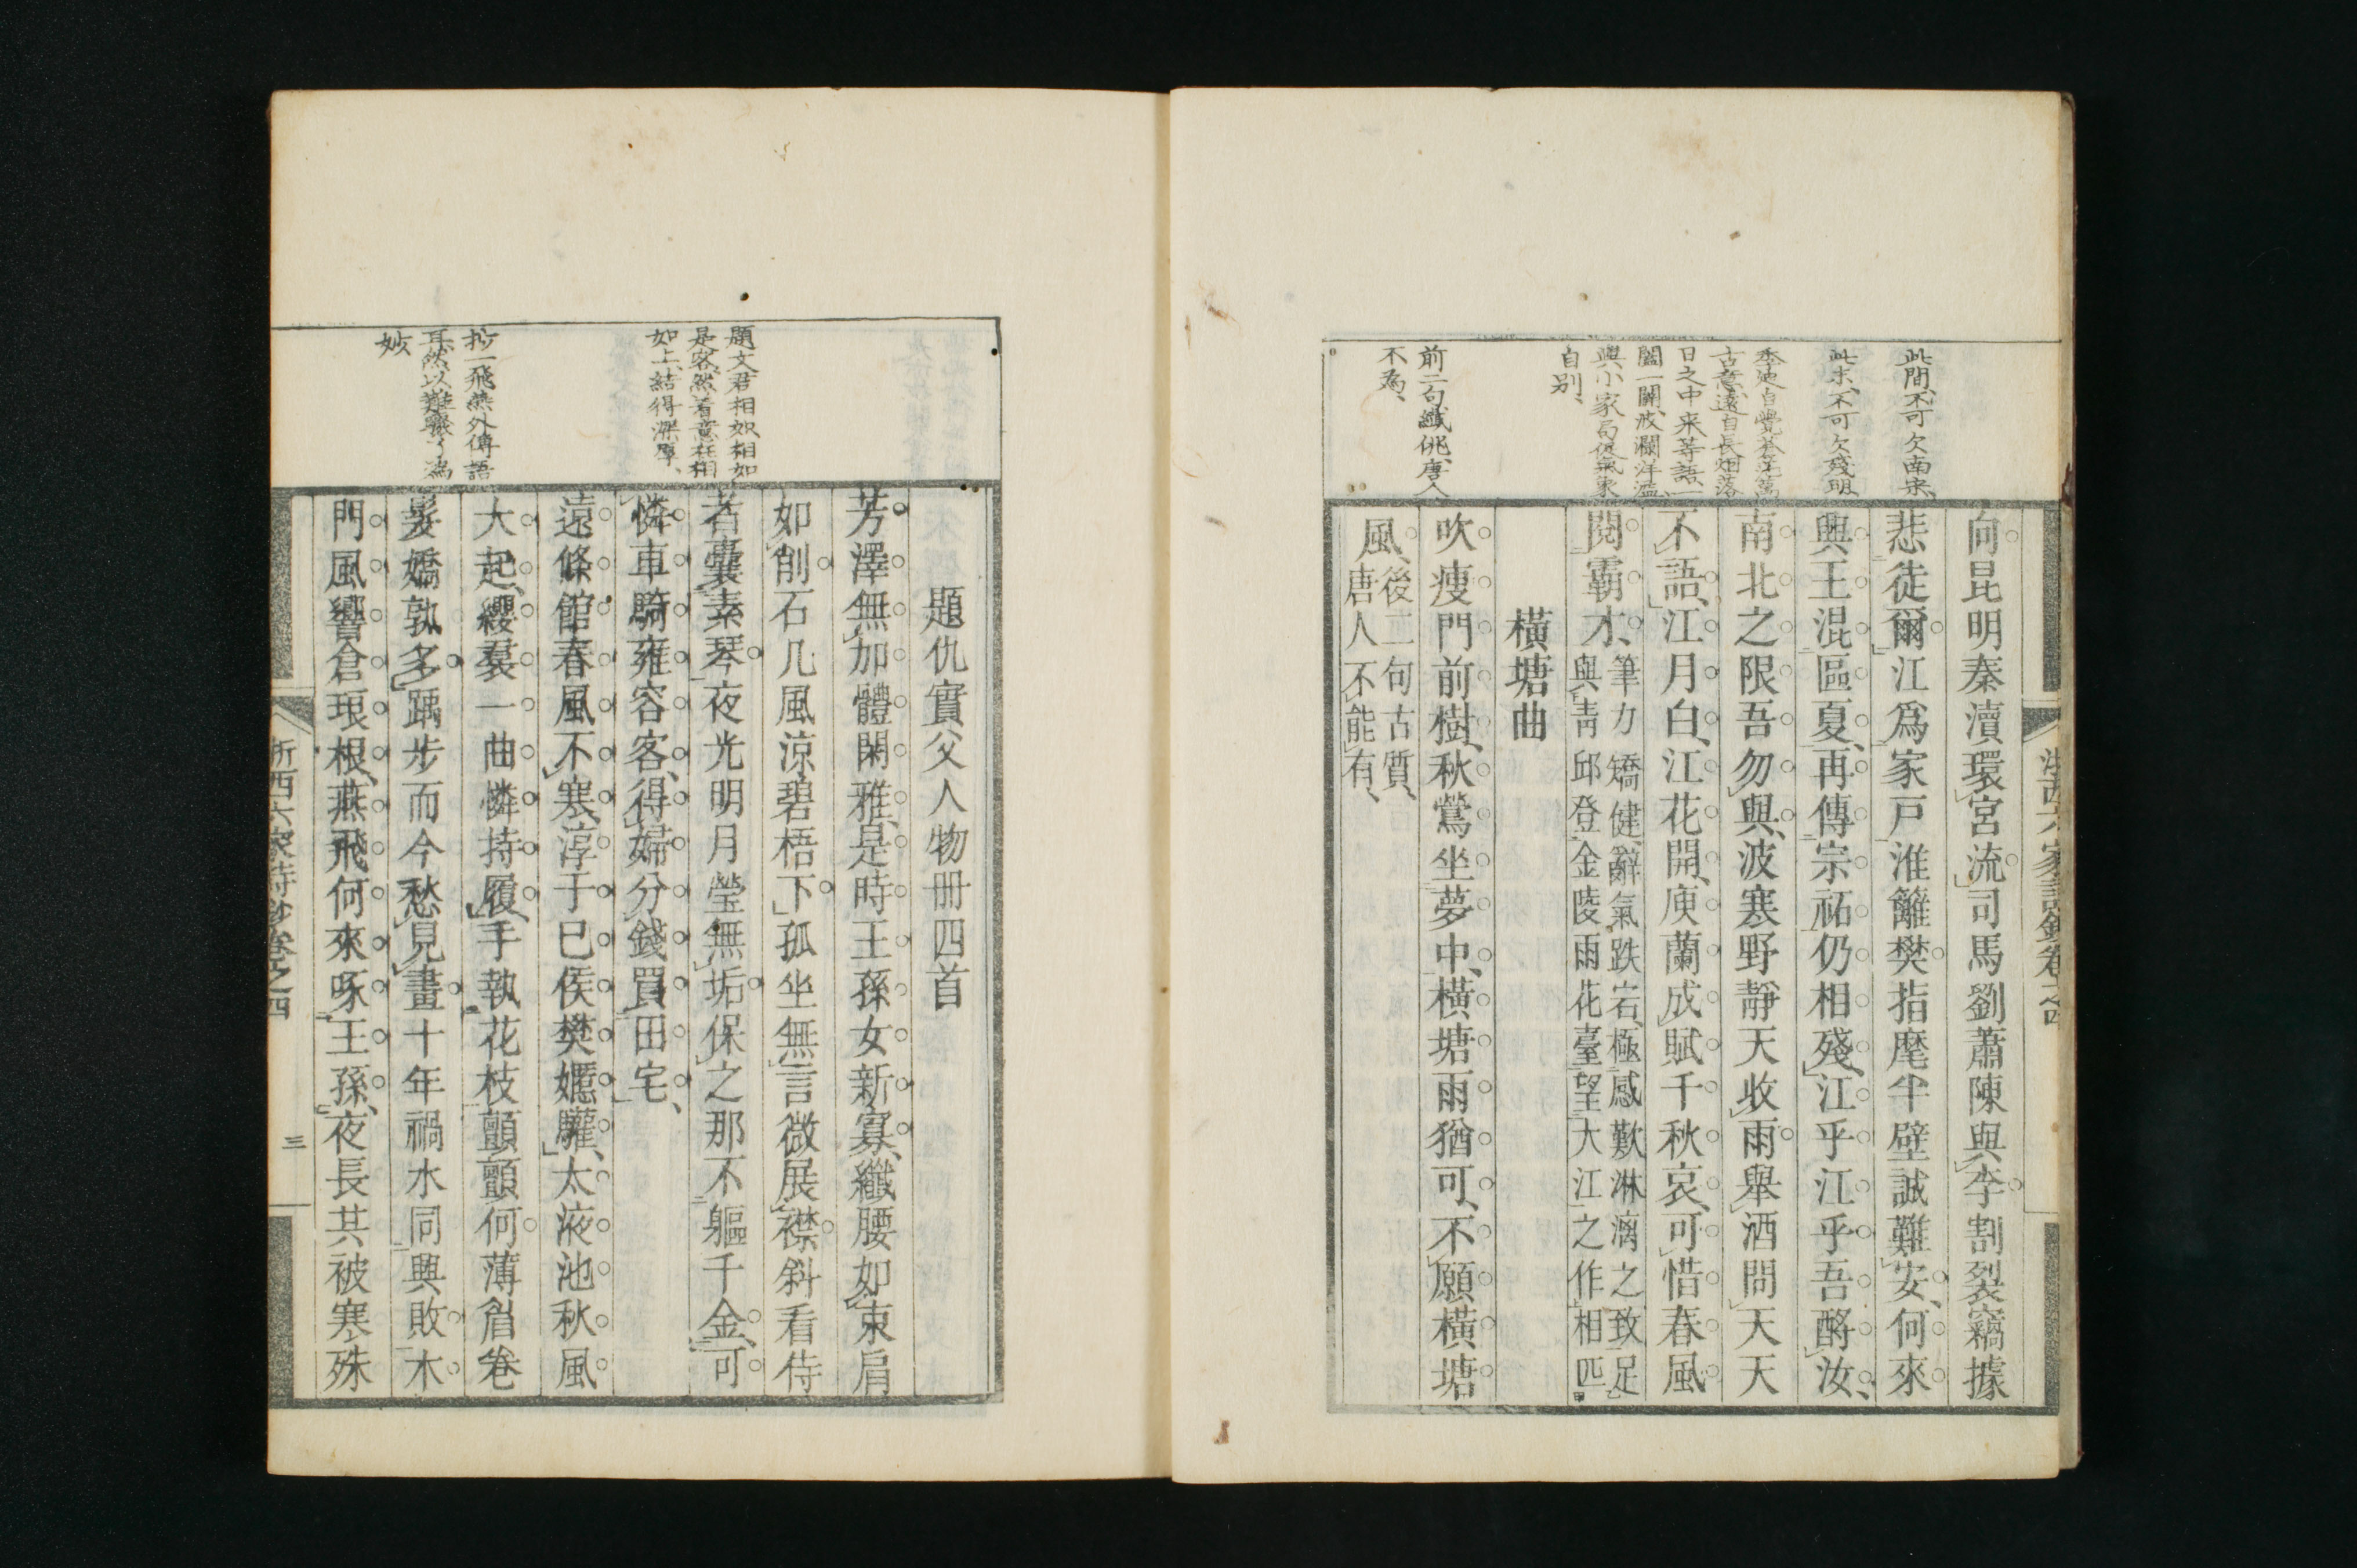 此間、不可欠南宋、
此末、不可欠殘明、
古意、遠自長烟落
日之中來等語、一
闔一開、波瀾洋溢、
與小家局促氣象
自别、
前二句纖佻、唐人
不爲、
向昆明秦瀆環宮流司馬劉蕭陳與李割裂竊據
悲徒爾江爲家戸淮籬樊指麾半壁誠難安、何來
興王混區夏、再傳宗祏仍相殘、江乎江乎吾酹汝、
南北之限吾勿與、波寒野靜天收雨舉洒問天天
不語、江月白、江花開、庾蘭成賦千秋哀、可惜春風
閲霸才、
筆力矯健、辭氣跌宕、極感歎淋漓之致足
與靑邱登金陵雨花臺望大江之作相匹
橫塘曲
吹瘦門前樹、秋鶯坐夢中、橫塘雨猶可、不願橫塘
風、
後二句古質、
唐人不能有、
浙西六家詩鈔卷之四
題文君相如、相如
是客、然着意在相
如上、結得深厚、
抄一飛燕外傳語
耳、然以難襲了爲
妙
題仇實父人物冊四首
芳澤無加體閑雅、是時王孫女新寡、纖腰如束肩
如削石几風涼碧梧下孤坐無言微展襟斜看侍
者囊素琴夜光明月瑩無垢保之那不軀千金、可
憐車騎雍容客、得婦分錢買田宅、
遠條館春風不寒、淳于巳侯樊嫕驩、太液池秋風
大起、纓裠一曲憐持履、手執花枝顫顫何薄眉卷
髮嬌孰多踽步而今愁見畫十年禍水同興敗木
門風響倉琅根、燕飛何來啄王孫、夜長其被寒殊
浙西六家詩鈔卷之四
三